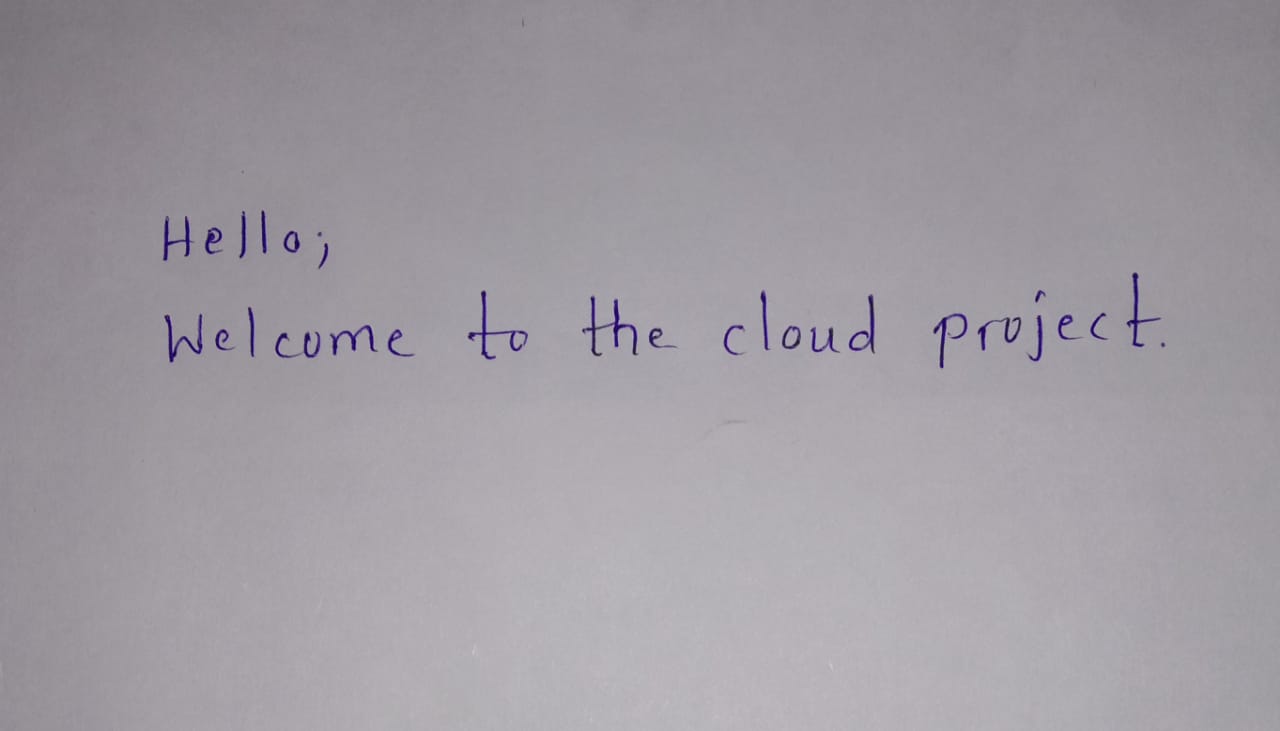 Hello;
Welcome to the cloud project.